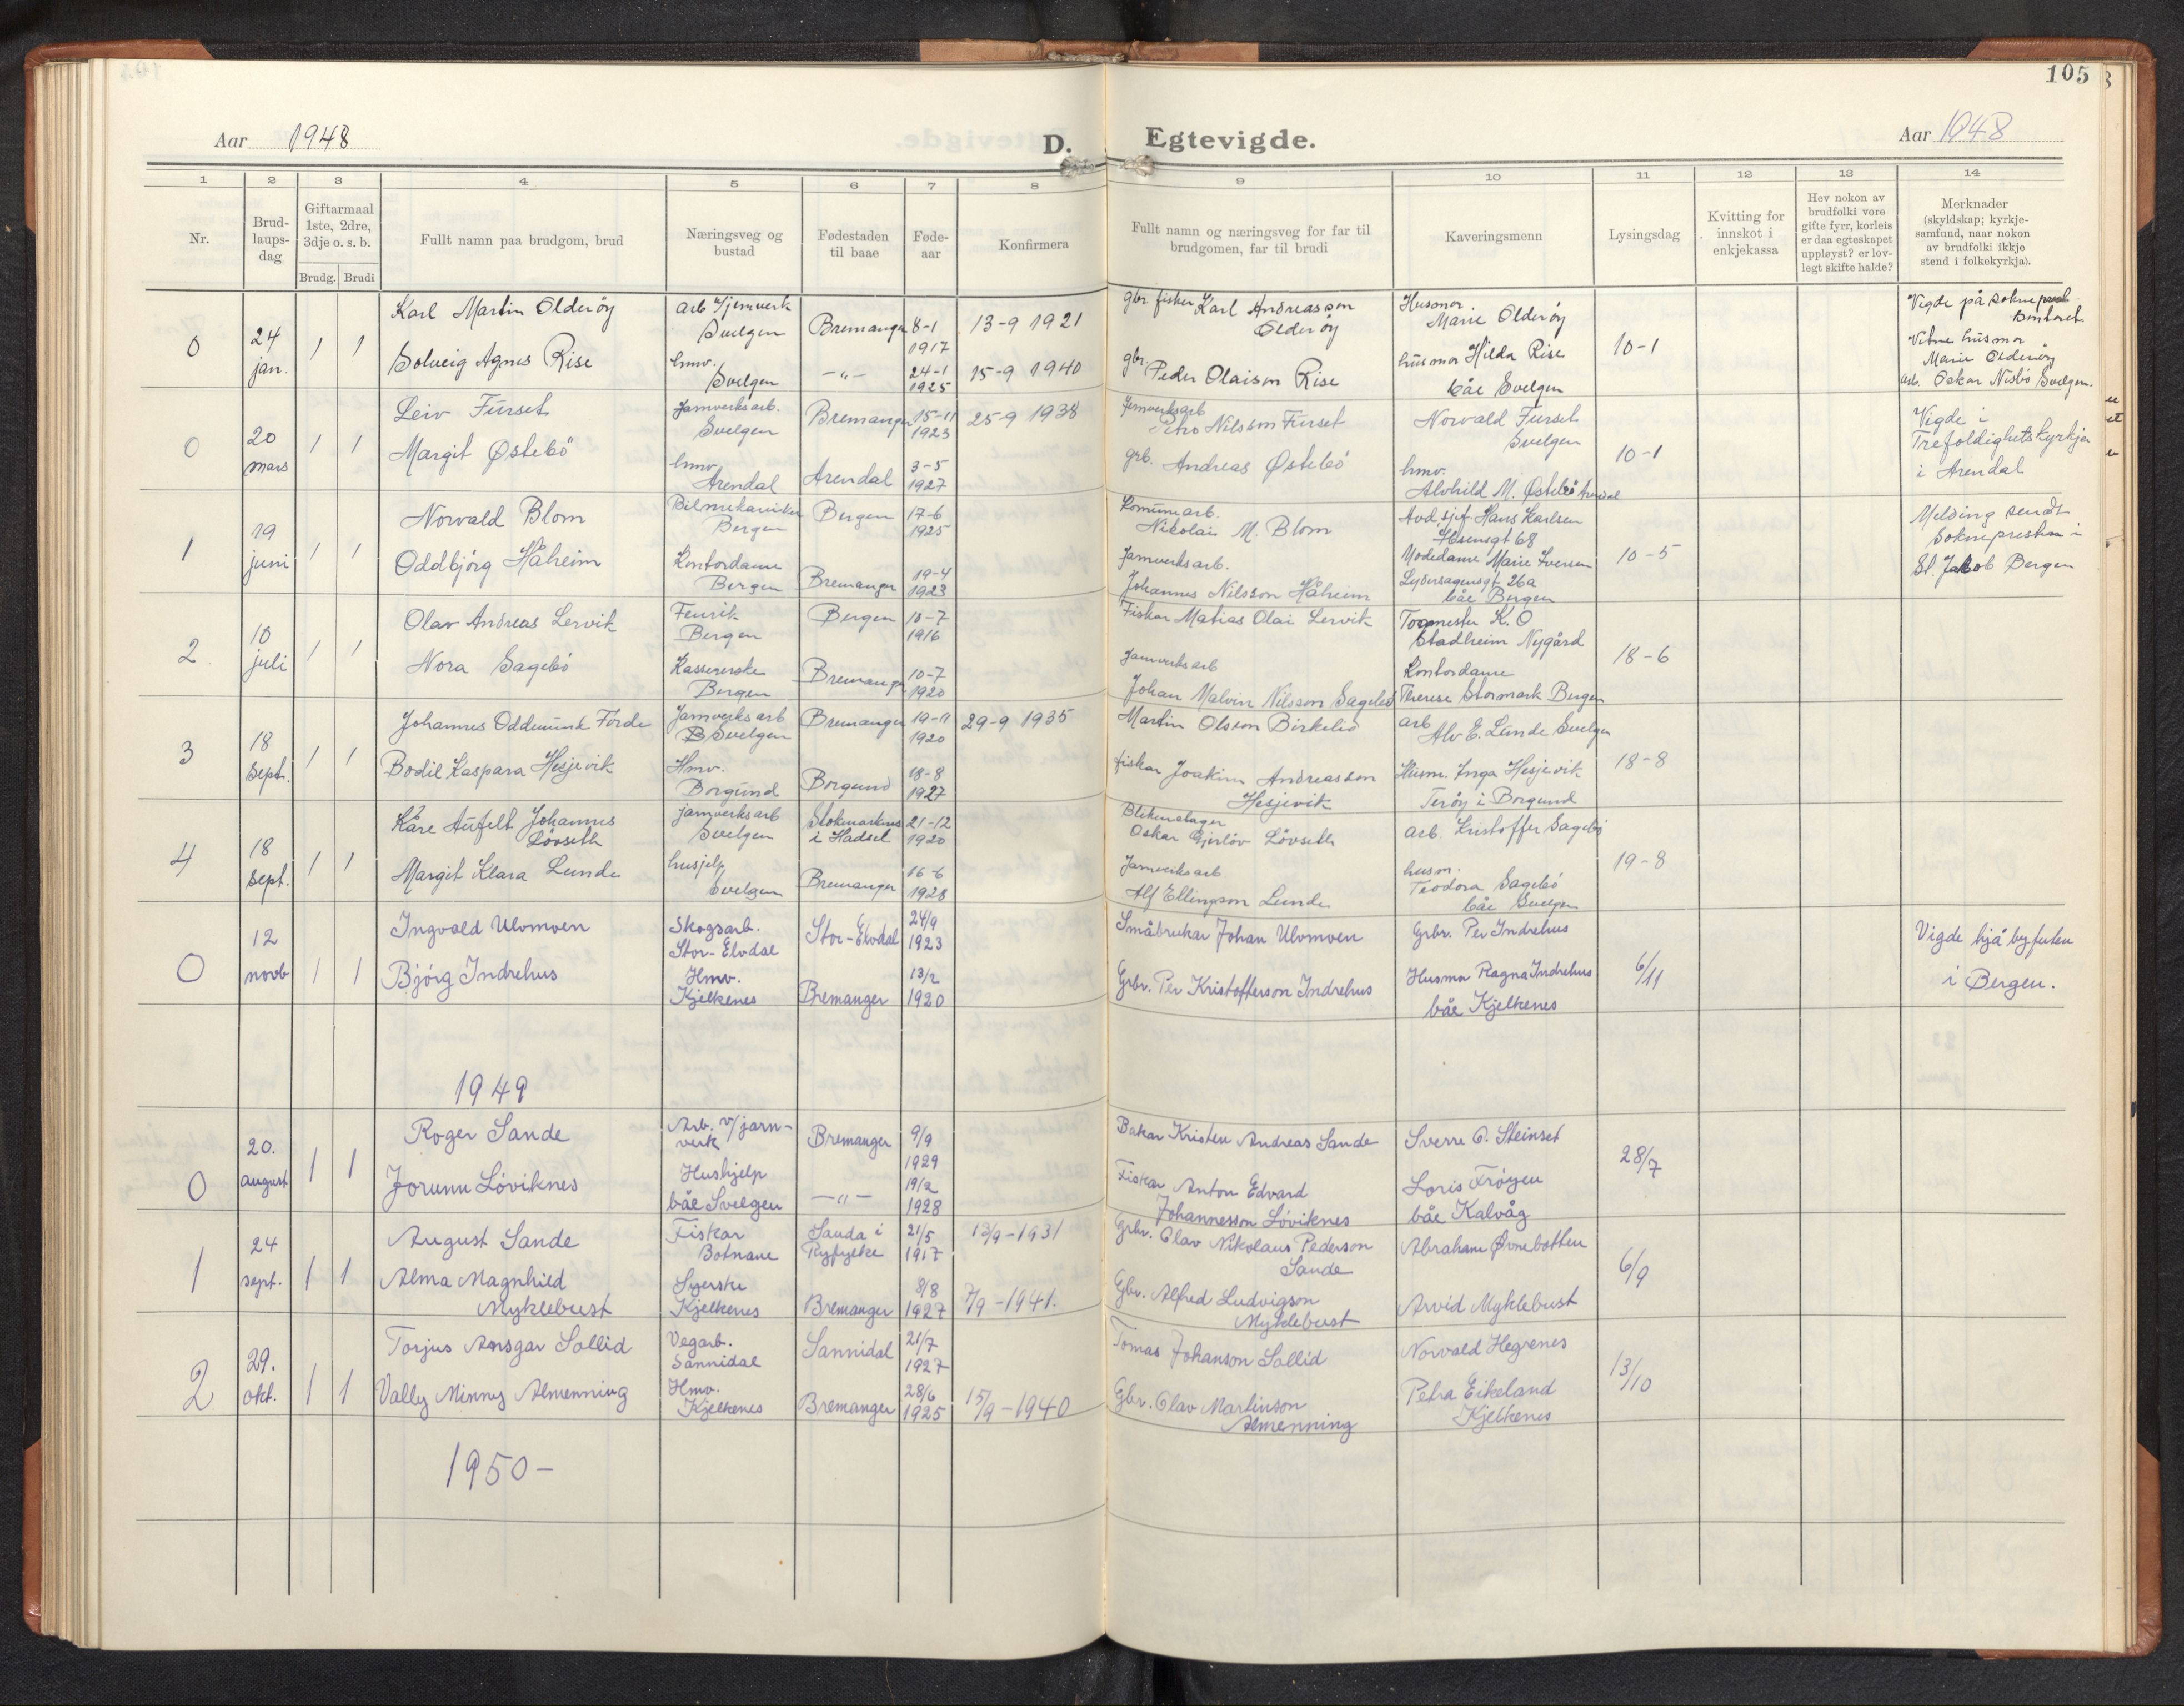 105
Aar 1948
D. Egtevigde.
Aar 1948
1 2 3 4 5 6 7 8 9 10 11 12 13 14
Nr.
Brud-
laups-
dag
Giftarmaal
1ste, 2dre,
3dje o. s. b.
Brudg. Brudi
Fullt namn paa brudgom, brud
Næringsveg og
bustad
Fødestaden
til baae
Føde-
aar
Konfirmera
Fullt namn og næringsveg for far til
brudgomen, far til brudi
Kaveringsmenn
Lysingsdag
Kvitting for
innskot i
enkjekassa
Hev nokon av
brudfolki vore
gifte fyrr, korleis
er daa egteskapet
uppløyst? er lov-
legt skifte halde?
Merknader
(skyldskap; kyrkje-
samfund, naar nokon
av brudfolki ikkje
stend i folkekyrkja).
0
24
jan.
1 1
Karl Martin Olderøy
Solveig Agnes Rise
arb v/jernverk
Svelgen
hmv.
Svelgen
Bremanger
—"—
8-1
1917
24-1
1925
13-9 1921
15-9 1940
gbr fisker Karl Andreasson
Olderøy
gbr.
Peder Olaison Rise
Husmor
Marie Olderøy
husmor Hilda Rise
båe Svelgen
10-1
Vigde på sokneprest
kontoret
Vitne husmor
Marie Olderøy
arb. Oskar Nisbö Svelgen.
0
20
mars
1 1
Leiv Furset
Margit Østebö
Jarnverksarb.
Svelgen
hmv.
Arendal
Bremanger
Arendal
15-11
1923
3-5
1927
25-9 1938
Jernverksarb
Petro Nilsson Furset
grb. Andreas Østebö
Norvald Furset
Svelgen
hmv.
Alvhild M. Østebö Arendal
10-1
Vigde i
Trefoldighetskyrkja
i Arendal
1
19
juni
1 1
Norvald Blom
Oddbjörg Håheim
Bilmekaniker
Bergen
Kontordame
Bergen
Bergen
Bremanger
17-6
1925
19-4
1923
Komunearb.
Nikolai M. Blom
Jarnverksarb.
Johannes Nilsson Håheim
Avd. sjef Hans Karlsen
Ibsensgt 68
Modedame Marie Iversen
Lydersagensgt. 26a
båe Bergen
10-5
Melding sendt
Soknepresten i
St. Jakob Bergen
2
10
juli
1 1
Olav Andreas Lervik
Nora Sagebö
Fenrik
Bergen
Kassererske
Bergen
Bergen
Bremanger
10-7
1916
10-7
1920
Fiskar Matias Olai Lervik
Jarnverksarb
Johan Malvin Nilsson Sagebö
Togmester K. O
Stadheim Nygård
Kontordame
Therese Stormark Bergen
18-6
3
18
sept.
1 1
Johannes Oddmund Förde
Bodil Kaspara Hesjevik
Jarnverksarb
Svelgen
Hmv.
Borgund
Bremanger
Borgund
19-11
1920
18-8
1927
29-9 1935
Martin Olsson Birkelid
fiskar Joakim Andreassen
Hesjevik
arb
Alv E. Lunde Svelgen
Husm. Inga Hesjevik
Terøy i Borgund
18-8
4
18
sept.
1 1
Kåre Aufelt Johannes
Lövseth
Margit Klara Lunde
jarnverksarb
Svelgen
husjelp
Svelgen
Stokmarknes
i Hadsel
Bremanger
21-12
1920
16-6
1928
Blikenslager
Oskar Gjerlöv Lövseth
Jarnverksarb
Alf Ellingson Lunde
arb. Kristoffer Sagebö
husm.
Teodora Sagebö
båe Svelgen
19-8
0
12
novb
1 1
Ingvald Ulvmoen
Bjørg Indrehus
Skogsarb.
Stor-Elvdal
Hmv.
Kjelkenes
Stor-Elvdal
Bremanger
24/9
1923
13/2
1920
Småbrukar Johan Ulvmoen
Grbr. Per Kristofferson Indrehus
Grbr. Per Indrehus
Husmo Ragna Indrehus
båe Kjelkenes
6/11
Vigde hjå byfuten
i Bergen.
1949
0
20.
august
1 1
Roger Sande
Jorunn Löviknes
Arb. v/jarn-
verk
Hushjelp
båe Svelgen
Bremanger
—"—
9/9
1929
19/2
1928
Bakar Kristen Andreas Sande
Fiskar Anton Edvard
Johannesson Löviknes
Sverre O. Steinset
Loris Frøyen
båe Kalvåg
28/7
1
24
sept.
1 1
August Sande
Alma Magnhild
Myklebust
Fiskar
Botnane
Syerske
Kjelkenes
Sauda i
Ryfylke
Bremanger
21/5
1917
8/8
1927
13/9-1931
7/9-1941.
Grbr. Olav Nikolaus Pederson
Sande
Gbr. Alfred Ludvigson
Myklebust
Abraham Øvrebotten
Arvid Myklebust
6/9
2
29.
okt.
1 1
Torjus Ansgar Sollid
Vally Minny Almenning
Vegarb.
Sannidal
Hmv.
Kjelkenes
Sannidal
Bremanger
21/7
1927
28/6
1925
15/9-1940
Tomas Johanson Sollid
Gbr. Olav Martinson
Almenning
Norvald Hegrenes
Petra Eikeland
Kjelkenes
13/10
1950-